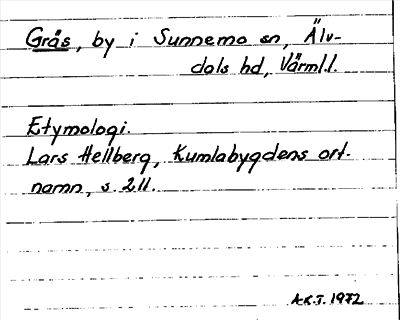 Grås, by i Sunnemo sn, Älv-
dals hd, Värml.l.
Etymologi.
Lars Hellberg, Kumlabygdens ort-
namn, s. 211.
A.K.T. 1972